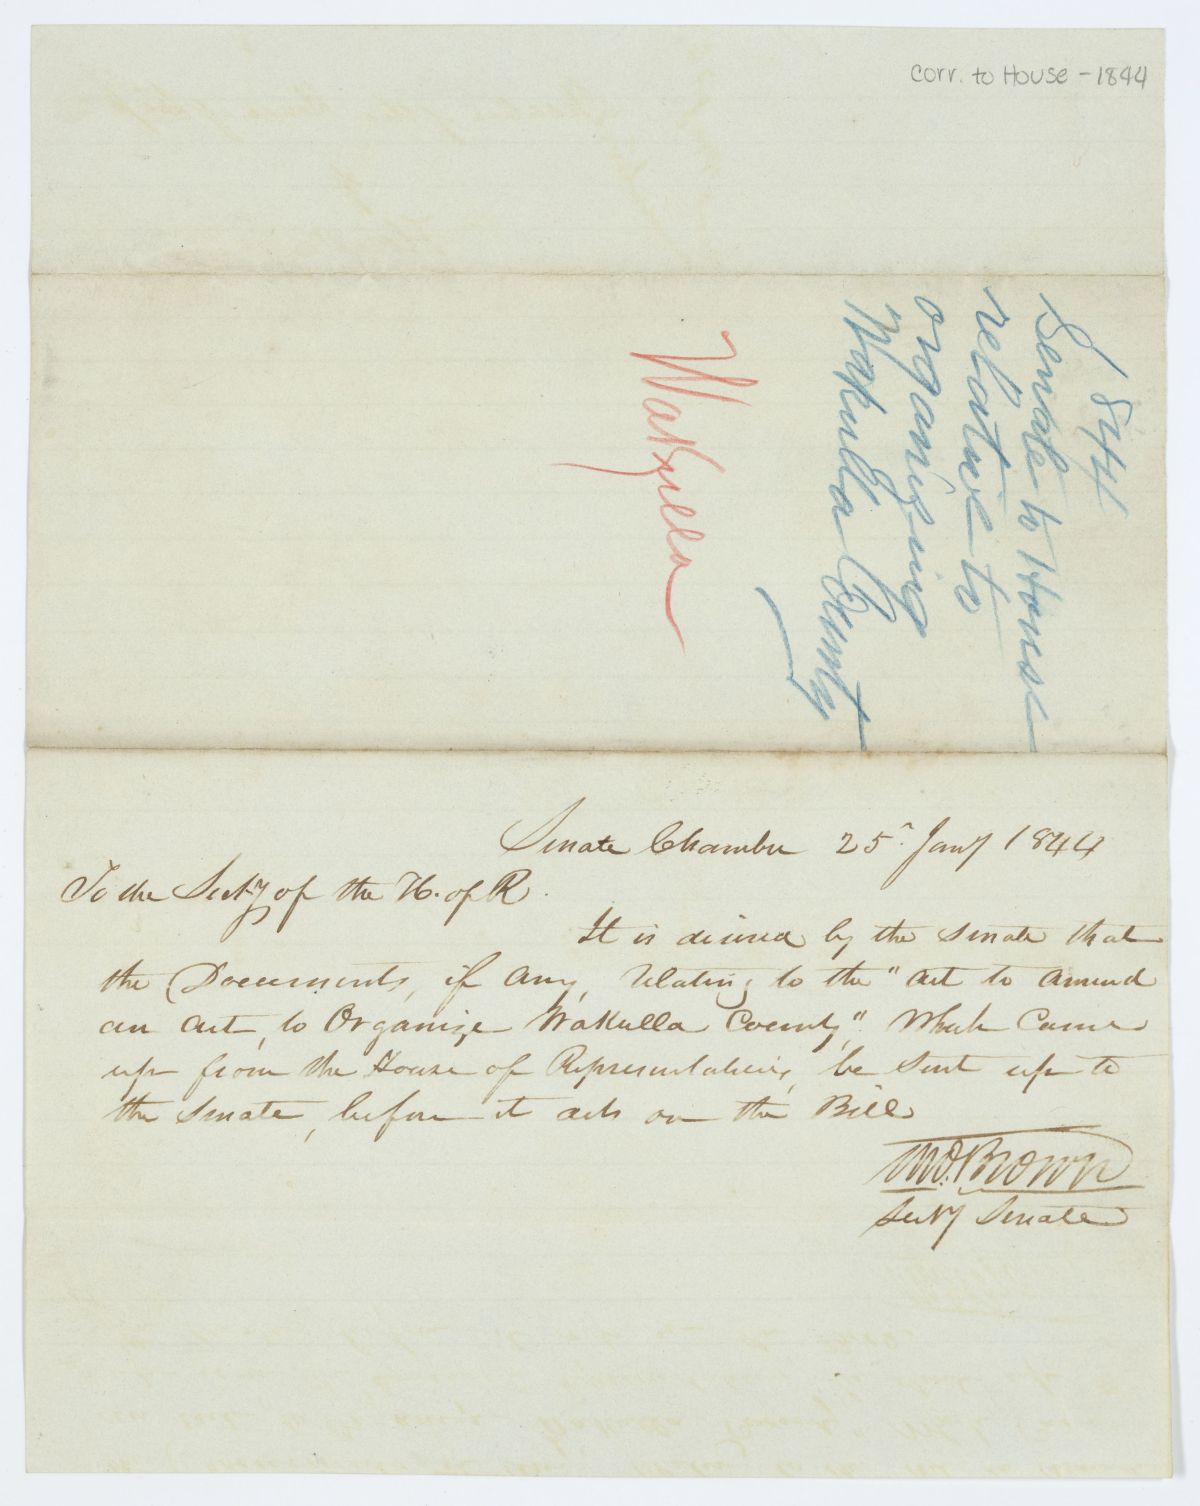 Corr. to House - 1844
1844
Senate to House
relative to
organizing
Wakulla County
Wakulla
Senate Chamber 25th Jany 1844
To the Secty of the H. of R.
It is desired by the Senate that
the Documents, if any, relating to the "act to amend
an act, to Organize Wakulla County," which came
up from the House of Representatives, be sent up to
the Senate, before it acts on the Bill
Tho. Brown
Secty Senate